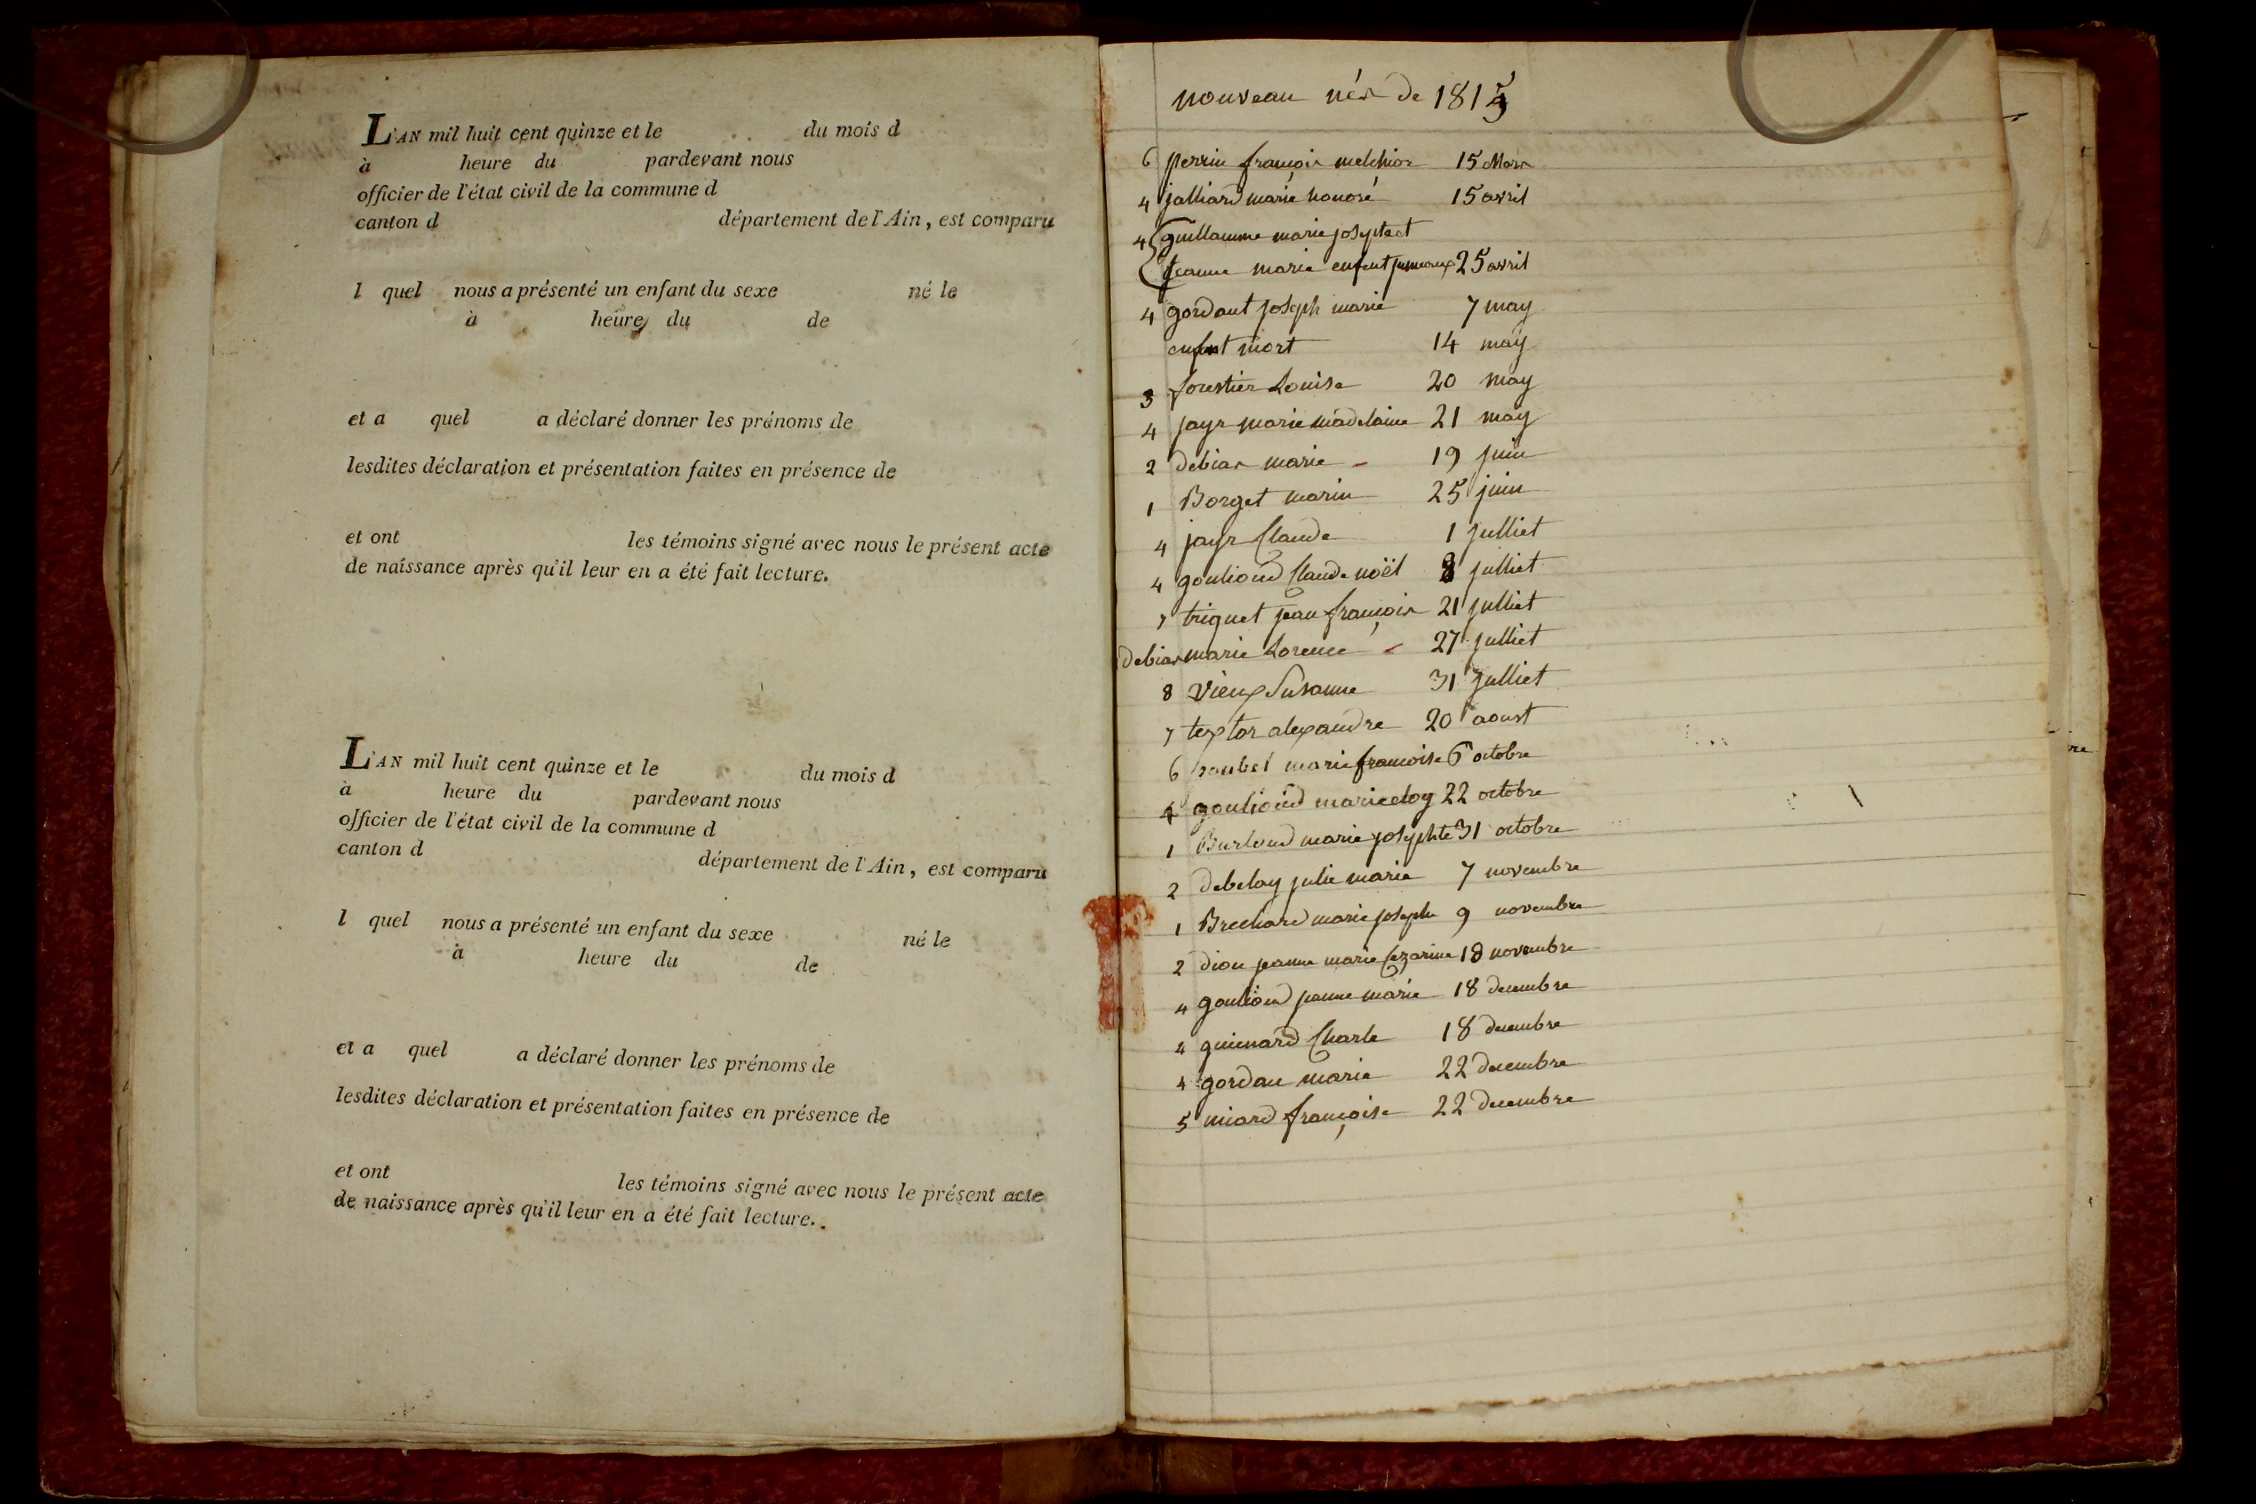 L'AN mil huit cent quinze et le du mois d
à heure du pardevant nous
officier de l'état civil de la commune d
canton d département de l'Ain, est comparu
l quel nous a présenté un enfant du sexe né le
à heure du de
et a quel a déclaré donner les prénoms de
lesdites déclaration et présentation faites en présence de
et ont les témoins signé avec nous le présent acte
de naissance après qu'il leur en a été fait lecture.
L'AN mil huit cent quinze et le du mois d
à heure du pardevant nous
officier de l'état civil de la commune d
canton d département de l'Ain, est comparu
l quel nous a présenté un enfant du sexe né le
à heure du de
et a quel a déclaré donner les prénoms de
lesdites déclaration et présentation faites en présence de
et ont les témoins signé avec nous le présent acte
de naissance après qu'il leur en a été fait lecture.
nouveau nés de 1815
6 perrin françois melchior 15 Mars
4 jalliard marie honoré 15 avril
4 guillaume marie josephte et
jeanne marie enfent jumeaux 25 avril
4 gordant joseph marie 7 may
enfent mort 14 may
3 forestier Louise 20 may
4 jayr marie madelaine 21 may
2 debias marie 19 juin
1 Borget marin 25 juin
4 jayr Claude 1 julliet
4 goulioud Claude noël 8 julliet
7 triquet jean françois 21 julliet
debias marie Lorence 27 julliet
8 vieux Susanne 31 julliet
7 textor alexandre 20 aoust
6 marie francoise 6 octobre
4 goulioud marie eloy 22 octobre
1 Burloud marie josephte 31 octobre
2 debelay julie marie 7 novembre
1 Brechard marie josephe 9 novembre
2 dion jeanne marie Cezarine 18 novembre
4 goulioud jeanne marie 18 decembre
4 guinard Charle 18 decembre
4 gordan marie 22 decembre
5 miard françoise 22 decembre